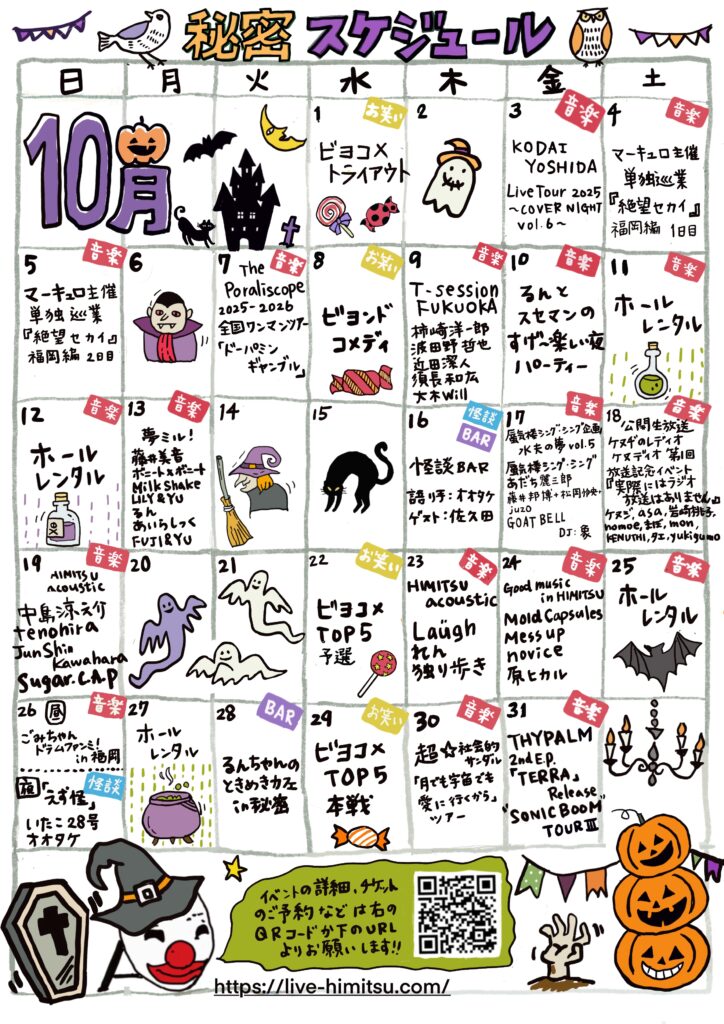 秘密 スケジュール
日 月 火 水 木 金 土
10月
1
お笑い
ビヨコメ
トライアウト
2
3
音楽
KODAI
YOSHIDA
Live Tour 2025
～COVER NIGHT
vol.6～
4
音楽
マーキュロ主催
単独巡業
『絶望セカイ』
福岡編 1日目
5
音楽
マーキュロ主催
単独巡業
『絶望セカイ』
福岡編 2日目
6
7
音楽
The
Poraliscope
2025-2026
全国ワンマンツアー
「ドーパミン
ギャンブル」
8
お笑い
ビヨンド
コメディ
9
音楽
T-session
FUKUOKA
柿崎洋一郎
波田野哲也
近田潔人
須長和広
大木Will
10
音楽
るんと
スセマンの
すげ〜楽しい夜
パーティー
11
音楽
ホール
レンタル
12
音楽
ホール
レンタル
13
音楽
夢ミル!
藤井美音
ポニートxポニート
Milk Shake
LILY&YU
るん
あいらしっく
FUJI&YU
14
15
16
怪談
BAR
怪談BAR
語り手:オオタケ
ゲスト:佐久田
17
音楽
蜃気楼シング・シング企画
水夫の夢 vol.5
蜃気楼シング・シング
あだち麗三郎
藤井邦博+松岡
juzo
GOAT BELL
DJ:象
18
音楽
公開生放送
ケヌヂのレディオ
ケヌディオ 第1回
放送記念イベント
『実際にはラジオ
放送はありません』
ケヌジ, asa, 岩崎桃子,
nomoe, まど, mon,
KENUTHI, タエ, yukigumo
19
音楽
HIMITSU
acoustic
中島涼介
tenohira
JunShin
Kawahara
Sugar.C.A.P
20
21
22
お笑い
ビヨコメ
TOP5
予選
23
音楽
HIMITSU
acoustic
Laügh
れん
独り歩き
24
音楽
Good music
in HIMITSU
Mold Capsules
Mess up
novice
原ヒカル
25
音楽
ホール
レンタル
26
昼
音楽
ごみちゃん
ドデムファンミ!
in 福岡
夜
怪談
「えず怪」
いたこ28号
オオタケ
27
ホール
レンタル
28
BAR
るんちゃんの
ときめきカフェ
in秘密
29
お笑い
ビヨコメ
TOP5
本戦
30
音楽
超☆社会的
サンダル
「月でも宇宙でも
愛に行くから」
ツアー
31
音楽
THYPALM
2nd E.P.
「TERRA」
Release
"SONIC BOOM"
TOUR III
イベントの詳細、チケット
のご予約などは右の
QRコードか下のURL
よりお願いします!!
https://live-himitsu.com/